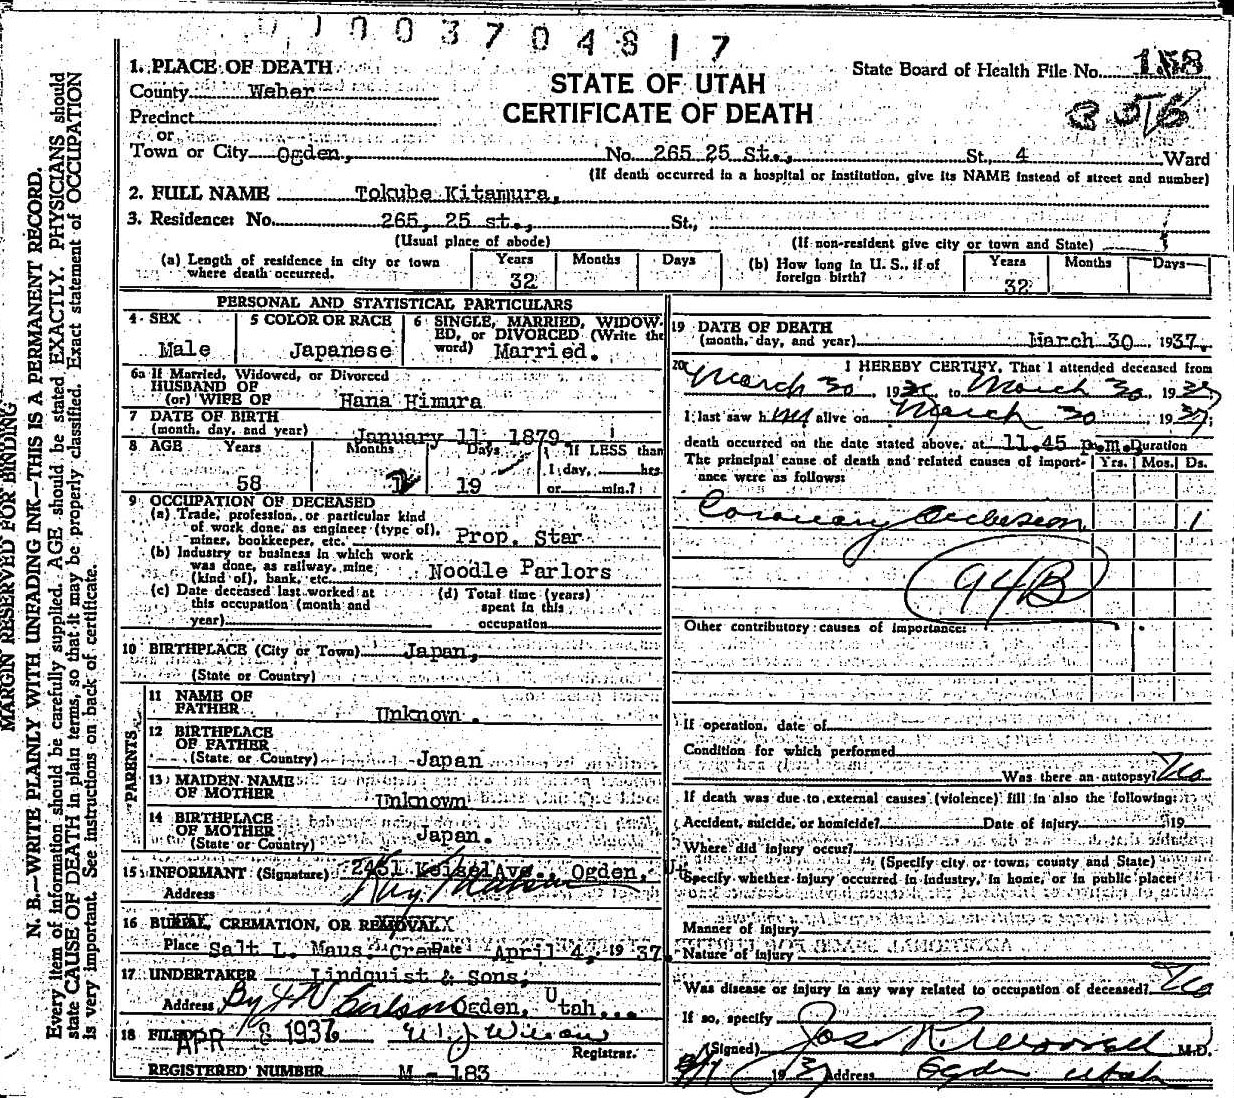 003704817
1. PLACE OF DEATH
STATE OF UTAH
State Board of Health File No. 158
County Weber
CERTIFICATE OF DEATH
Precinct
or
Town or City Ogden, No. 265 25 St., St., 4 Ward
(If death occurred in a hospital or institution, give its NAME instead of street and number)
2. FULL NAME Tokube Kitamura,
3. Residence: No. 265, 25 st., St.,
(Usual place of abode) (If non-resident give city or town and State)
(a) Length of residence in city or town where death occurred. Years 32 Months Days
(b) How long in U. S., if of foreign birth? Years 32 Months Days
PERSONAL AND STATISTICAL PARTICULARS
4 SEX Male
5 COLOR OR RACE Japanese
6 SINGLE, MARRIED, WIDOWED, or DIVORCED (Write the word) Married.
6a If Married, Widowed, or Divorced
HUSBAND OF
(or) WIFE OF Hana Himura
7 DATE OF BIRTH
(month, day, and year) January 11, 1879
8 AGE Years Months Days If LESS than
1 day, hrs.
58 19 or min.?
9 OCCUPATION OF DECEASED
(a) Trade, profession, or particular kind
of work done, as engineer (type of),
miner, bookkeeper, etc. Prop. Star
(b) Industry or business in which work
was done, as railway, mine,
(kind of), bank, etc. Noodle Parlors
(c) Date deceased last worked at
this occupation (month and
year)
(d) Total time (years)
spent in this
occupation
10 BIRTHPLACE (City or Town) Japan,
(State or Country)
PARENTS
11 NAME OF
FATHER Unknown.
12 BIRTHPLACE
OF FATHER
(State or Country) Japan
13 MAIDEN NAME
OF MOTHER Unknown
14 BIRTHPLACE
OF MOTHER
(State or Country) Japan.
15 INFORMANT (Signature) 2451 Keisel Ave., Ogden, Ut
Address
16 BURIAL, CREMATION, OR REMOVAL
Place Salt L. Maus. Crem Date April 4, 1937.
17 UNDERTAKER Lindquist & Sons,
Address By Ogden, Utah...
18 FILED APR 8 1937 19
Registrar.
REGISTERED NUMBER M - 183
19 DATE OF DEATH
(month, day, and year) March 30 1937.
20 I HEREBY CERTIFY, That I attended deceased from
March 30, 19 to March 30, 1937
I last saw him alive on March 30 1937;
death occurred on the date stated above, at 11.45 p.m. Duration
The principal cause of death and related causes of importance were as follows: Yrs. Mos. Ds.
Coronary Occlusion 1
94B
Other contributory causes of importance:
If operation, date of
Condition for which performed
Was there an autopsy? No
If death was due to external causes (violence) fill in also the following:
Accident, suicide, or homicide? Date of injury 19
Where did injury occur?
(Specify city or town, county and State)
Specify whether injury occurred in industry, in home, or in public place:
Manner of injury
Nature of injury
Was disease or injury in any way related to occupation of deceased? No
If so, specify
(Signed) M.D.
19 37 Address Ogden Utah
MARGIN RESERVED FOR BINDING
N. B.—WRITE PLAINLY WITH UNFADING INK—THIS IS A PERMANENT RECORD.
Every item of information should be carefully supplied. AGE should be stated EXACTLY. PHYSICIANS should
state CAUSE OF DEATH in plain terms, so that it may be properly classified. Exact statement of OCCUPATION
is very important. See instructions on back of certificate.